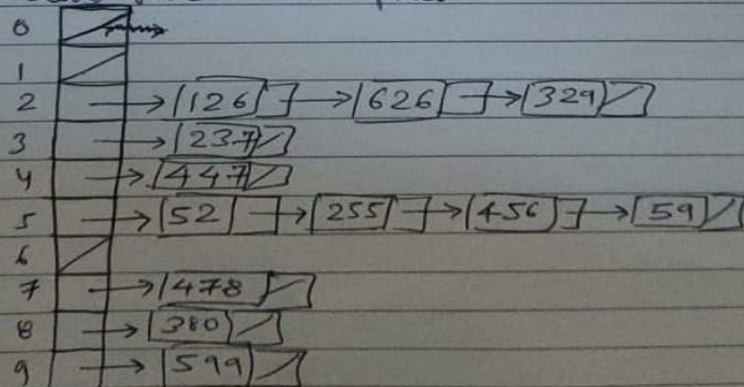 0
1
2 126 626 329
3 237
4 447
5 52 255 456 59
6
7 478
8 380
9 599